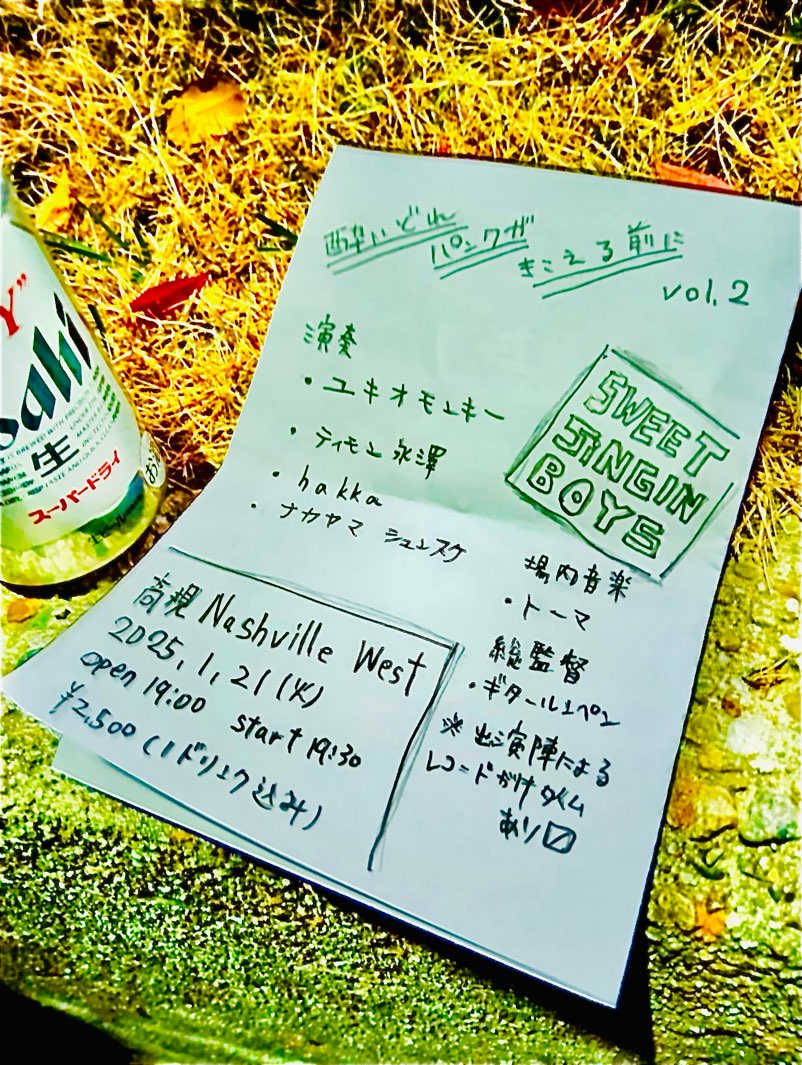 酔いどれ
パンクが
きこえる前に
vol.2
演奏
・ユキオモンキー
・ティモン永澤
・hakka
・ナカヤマ シュンスケ
SWEET
SiNGIN
BOYS
場内音楽
・トーマ
総監督
・ギタールンペン
※出演陣による
レコードがけタイム
あり☑
高槻 Nashville West
2025.1.21(火)
open 19:00 start 19:30
¥2,500(1ドリンク込み)
Y"
Asahi
生
スーパードライ